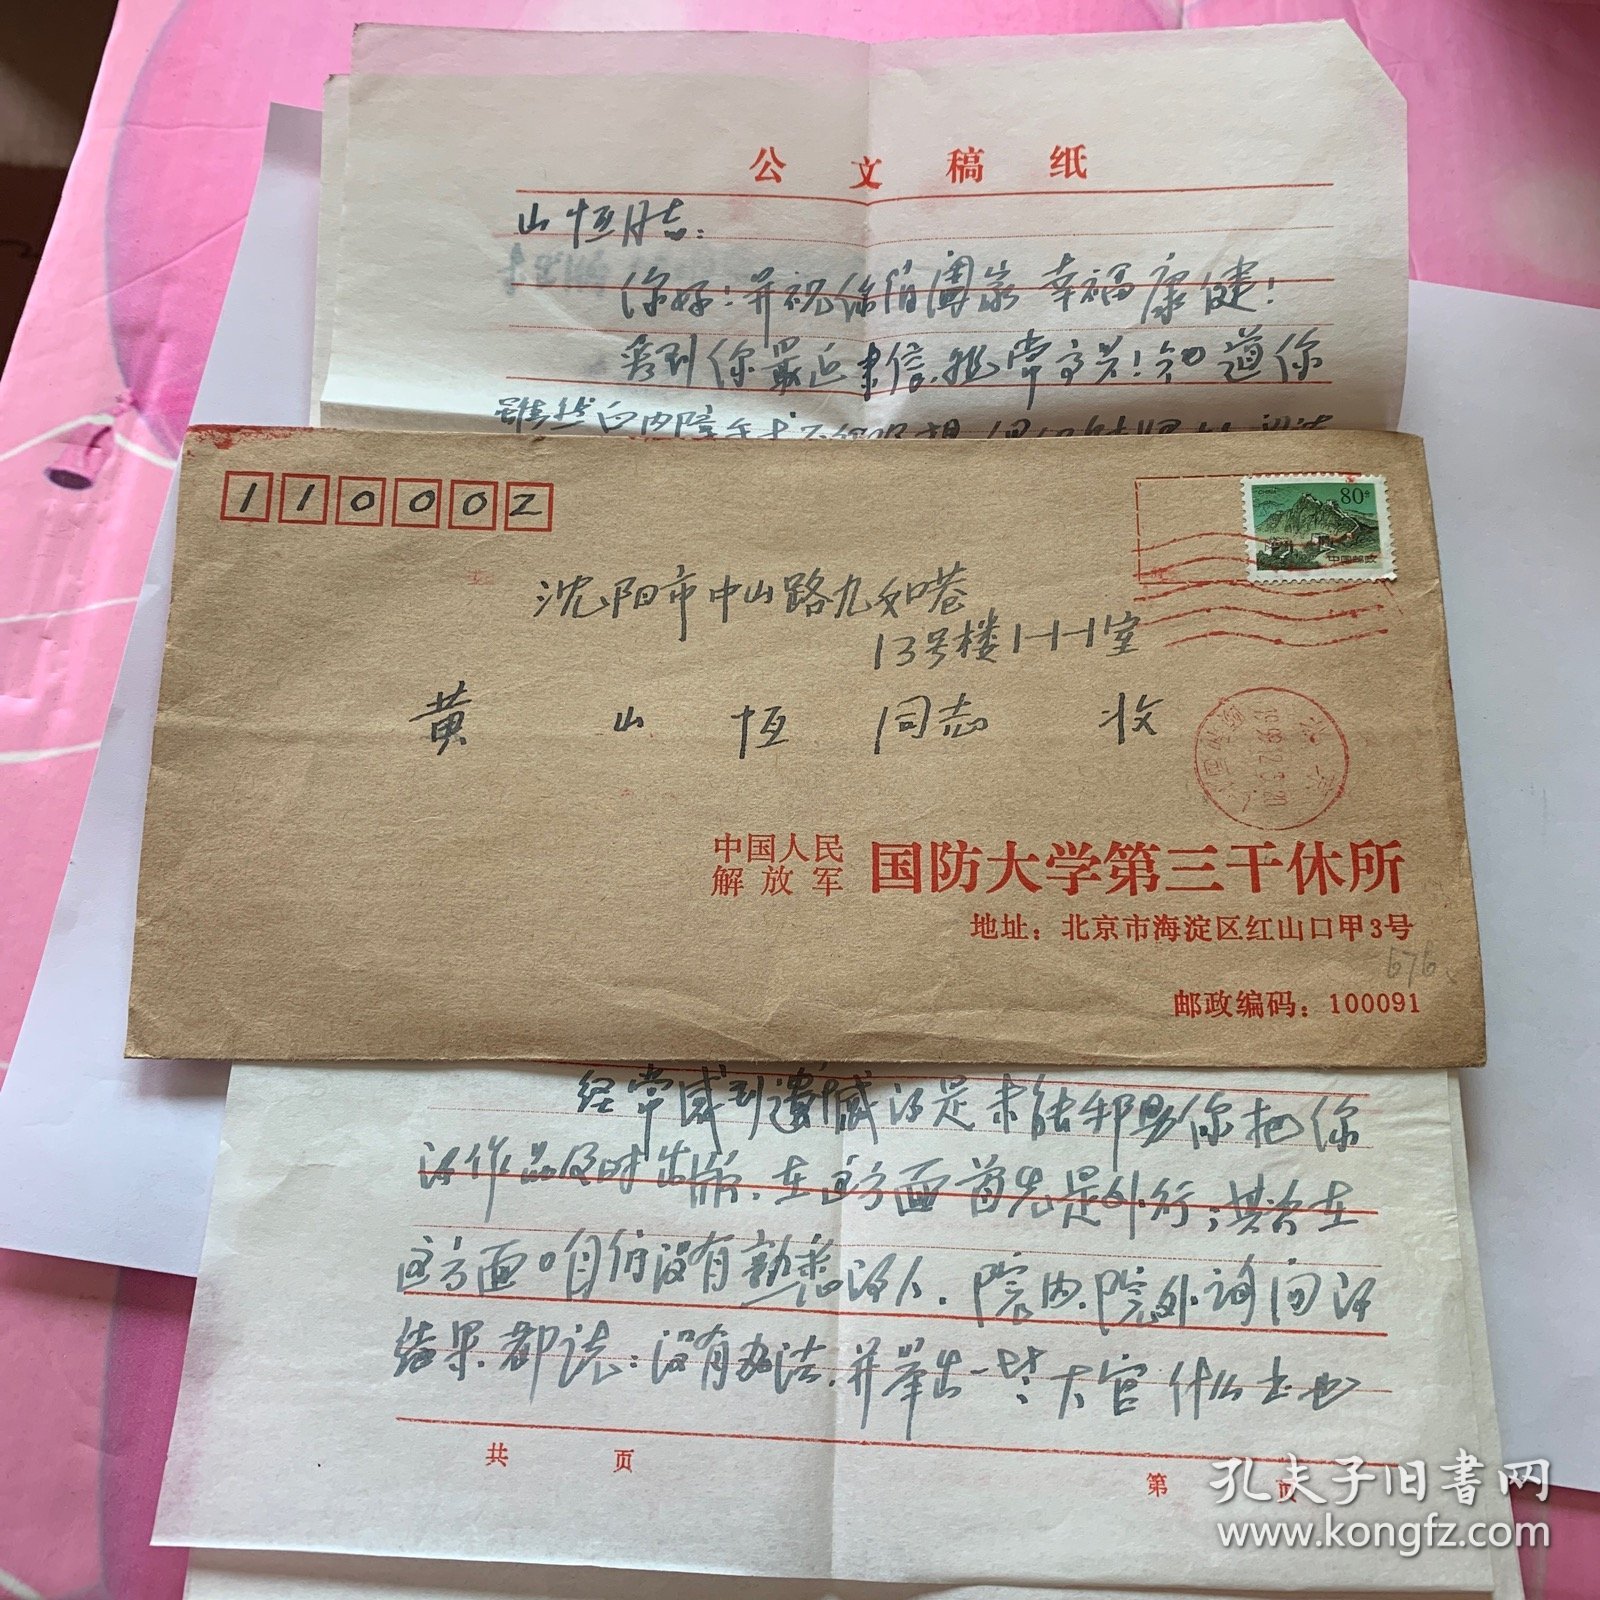 公文稿纸
山恒同志:
你好!并祝你们阖家幸福康健!
看到你最近来信,非常高兴!知道你
虽然白内障手术不
110002
80分
CHINA
中国邮政
沈阳市中山路九如巷
13号楼1-1-1室
黄山恒同志 收
中国人民
解放军
国防大学第三干休所
地址:北京市海淀区红山口甲3号
676
邮政编码:100091
经常感到遗憾的是未能帮助你把你
的作品及时出版,在这方面首先是外行;其次在
这方面咱们没有熟悉的人,院内、院外询问的
结果,都说:没有办法,并举出一些大官什么士也
共 页
第 页
孔夫子旧书网
www.kongfz.com